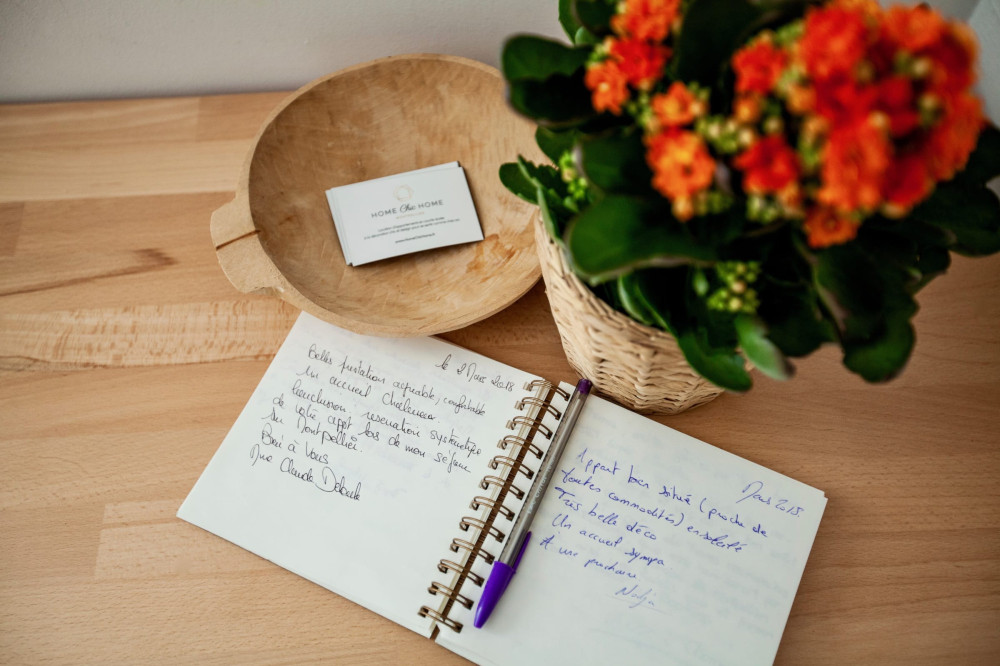 HOME Chic HOME
MONTPELLIER
www.homechichome.fr
le 2 Mars 2018
Belles prestation agréable, confortable
un accueil Chaleureux
Conclusion: reservation systematique
de votre appt lors de mon séjour
sur Montpellier.
Bien à Vous
Mme Claude
Mars 2018.
Appart bien situé (proche de
toutes commodités) ensoleillé
Très belle déco
Un accueil sympa
A une prochaine
Nadja